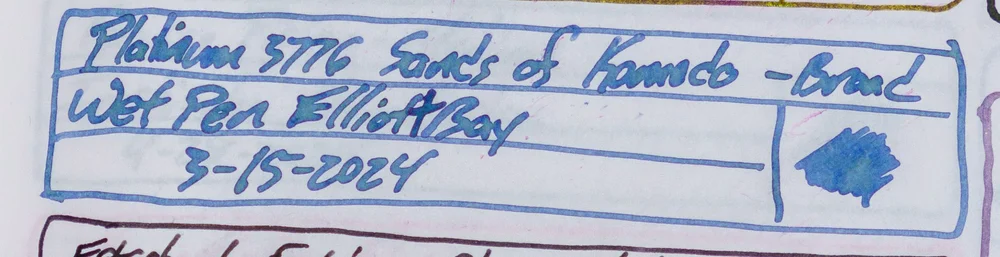 Platinum 3776 Sands of Kanndo - Broad
Wet Pen Elliott Bay
3-15-2024